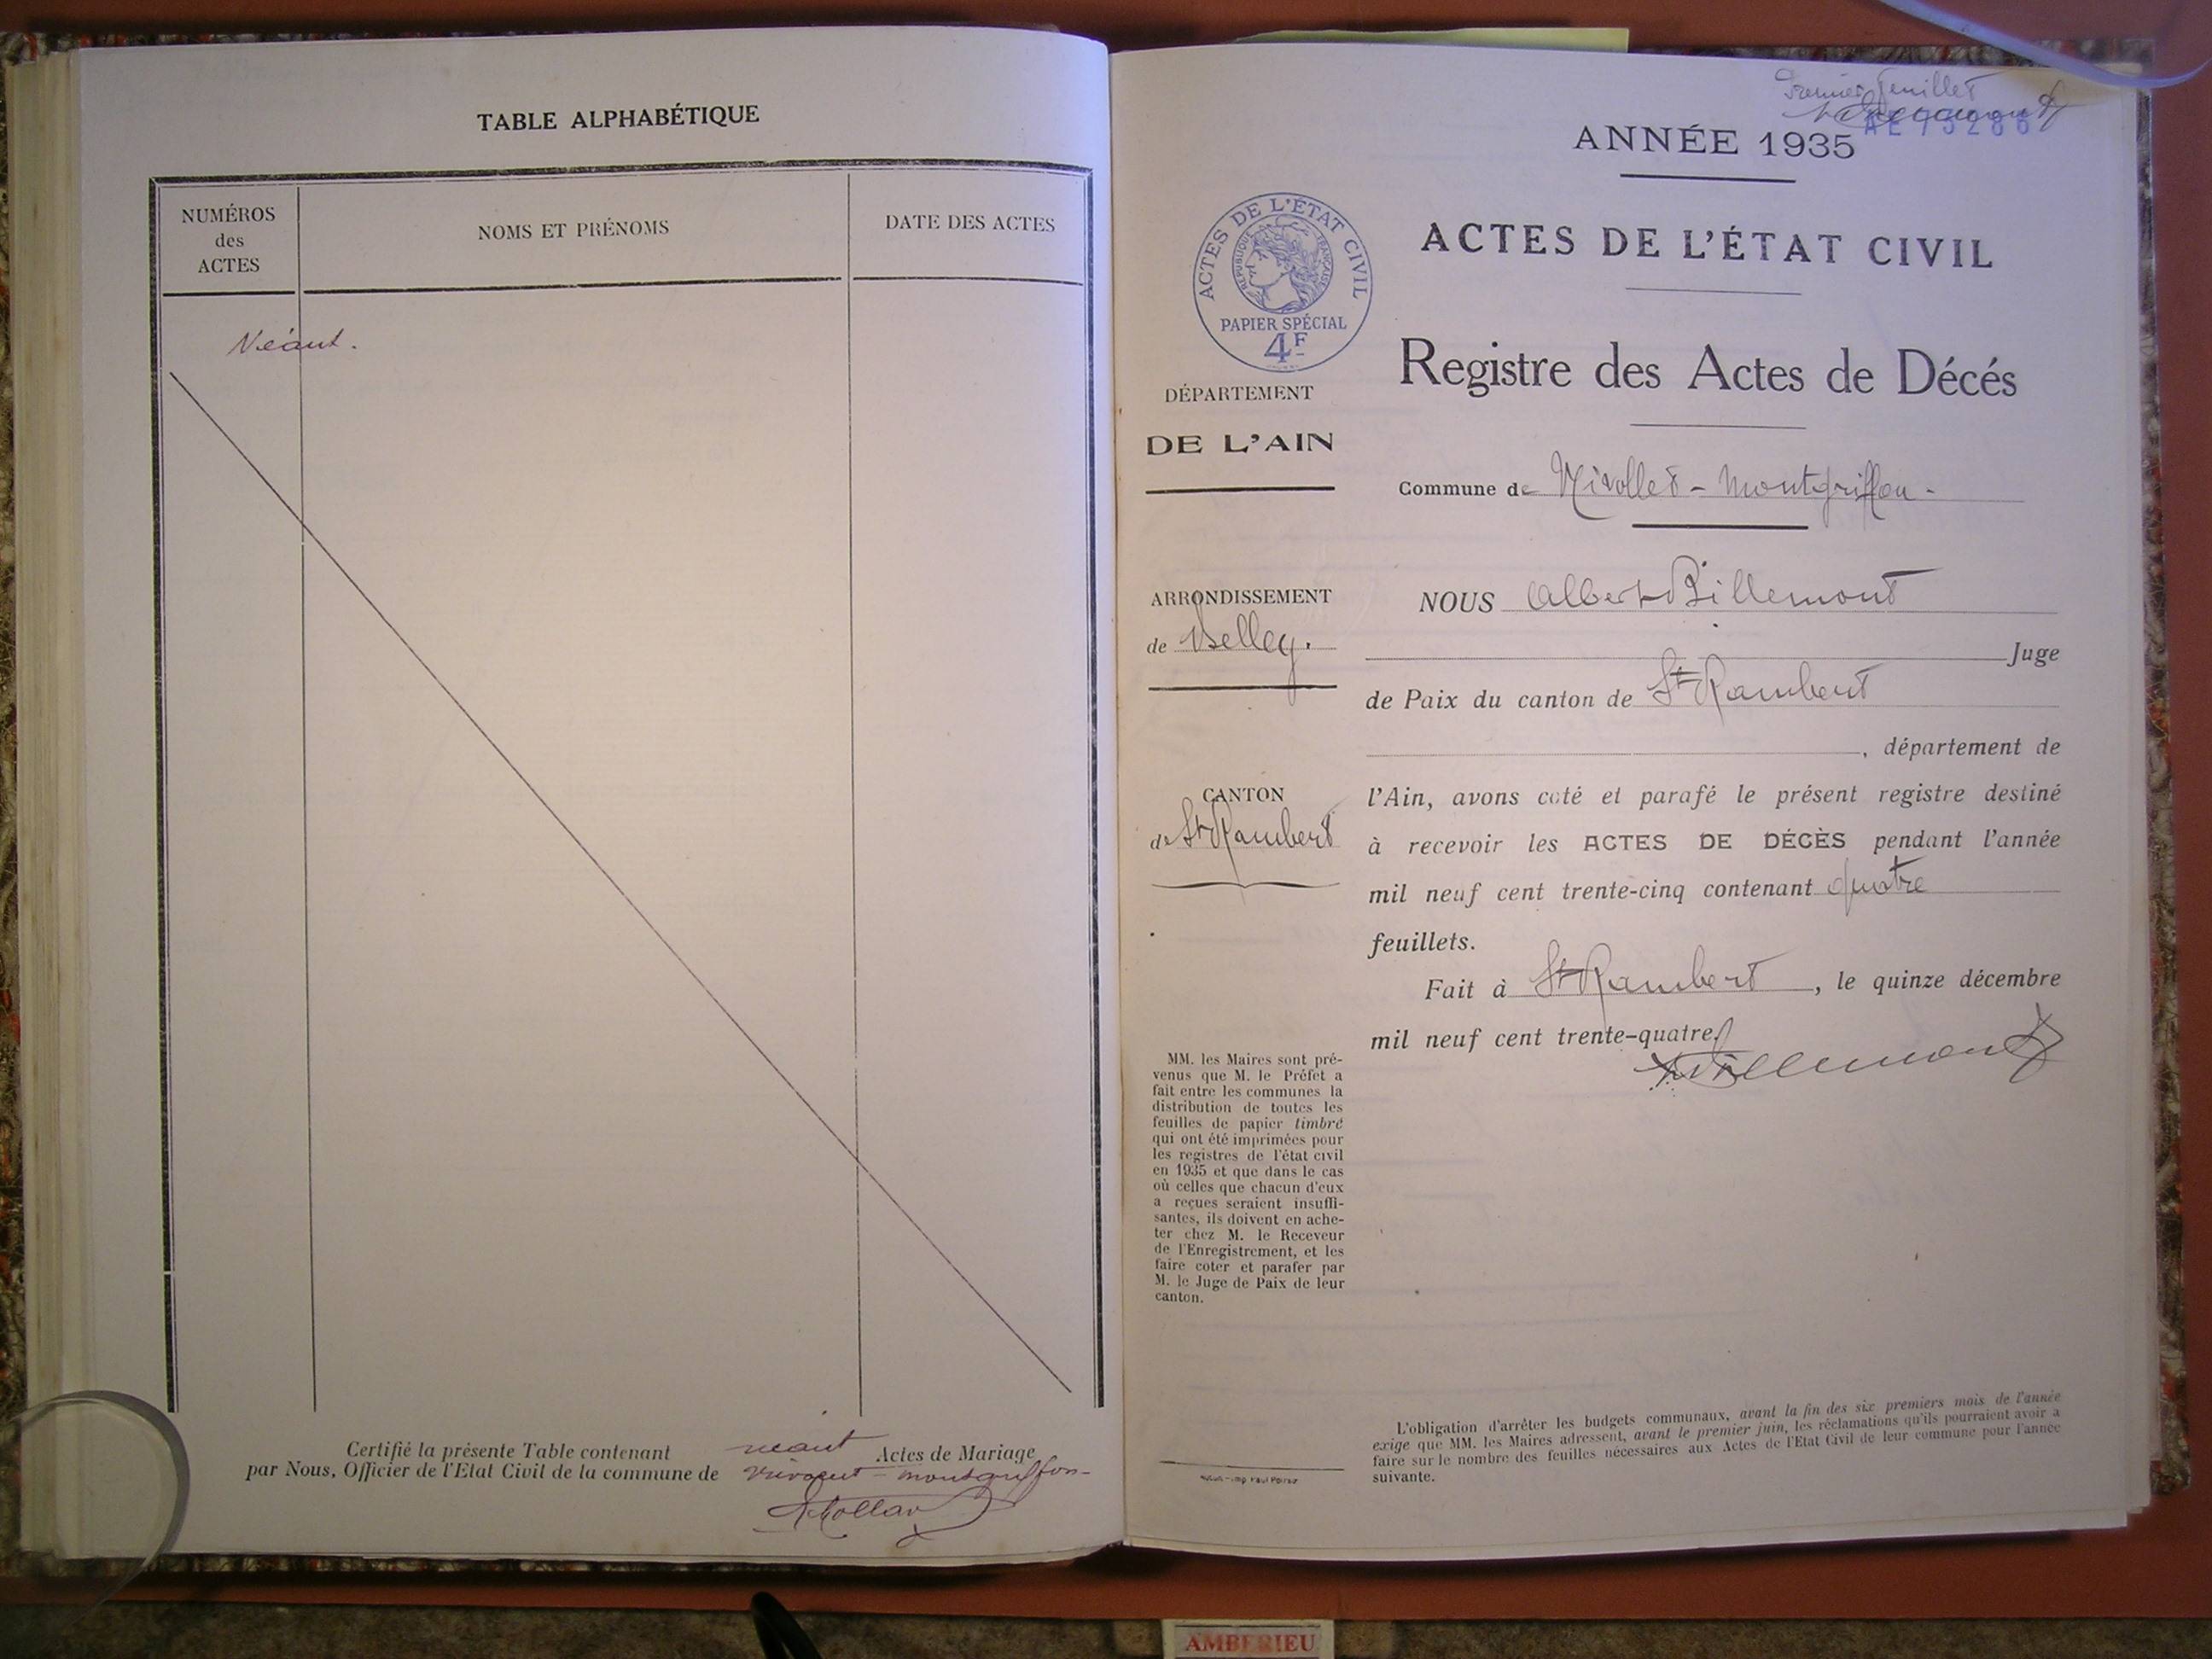 TABLE ALPHABÉTIQUE
NUMÉROS
des
ACTES
NOMS ET PRÉNOMS
DATE DES ACTES
Néant.
Certifié la présente Table contenant néant Actes de Mariage
par Nous, Officier de l'Etat Civil de la commune de Nivollet-Montgriffon-
Premier feuillet
ANNÉE 1935
ACTES DE L'ÉTAT CIVIL
RÉPUBLIQUE FRANÇAISE
PAPIER SPÉCIAL
4F
ACTES DE L'ÉTAT CIVIL
Registre des Actes de Décés
DÉPARTEMENT
DE L'AIN
Commune de Nivollet-Montgriffon-
ARRONDISSEMENT
de Belley.
CANTON
de St Rambert
NOUS Albert Billemont
Juge
de Paix du canton de St Rambert
, département de
l'Ain, avons coté et parafé le présent registre destiné
à recevoir les ACTES DE DÉCÈS pendant l'année
mil neuf cent trente-cinq contenant quatre
feuillets.
Fait à St Rambert, le quinze décembre
mil neuf cent trente-quatre.
Billemont
MM. les Maires sont pré-
venus que M. le Préfet a
fait entre les communes la
distribution de toutes les
feuilles de papier timbré
qui ont été imprimées pour
les registres de l'état civil
en 1935 et que dans le cas
où celles que chacun d'eux
a reçues seraient insuffi-
santes, ils doivent en ache-
ter chez M. le Receveur
de l'Enregistrement, et les
faire coter et parafer par
M. le Juge de Paix de leur
canton.
L'obligation d'arrêter les budgets communaux, avant la fin des six premiers mois de l'année
exige que MM. les Maires adressent, avant le premier juin, les réclamations qu'ils pourraient avoir a
faire sur le nombre des feuilles nécessaires aux Actes de l'Etat Civil de leur commune pour l'année
suivante.
AMBERIEU